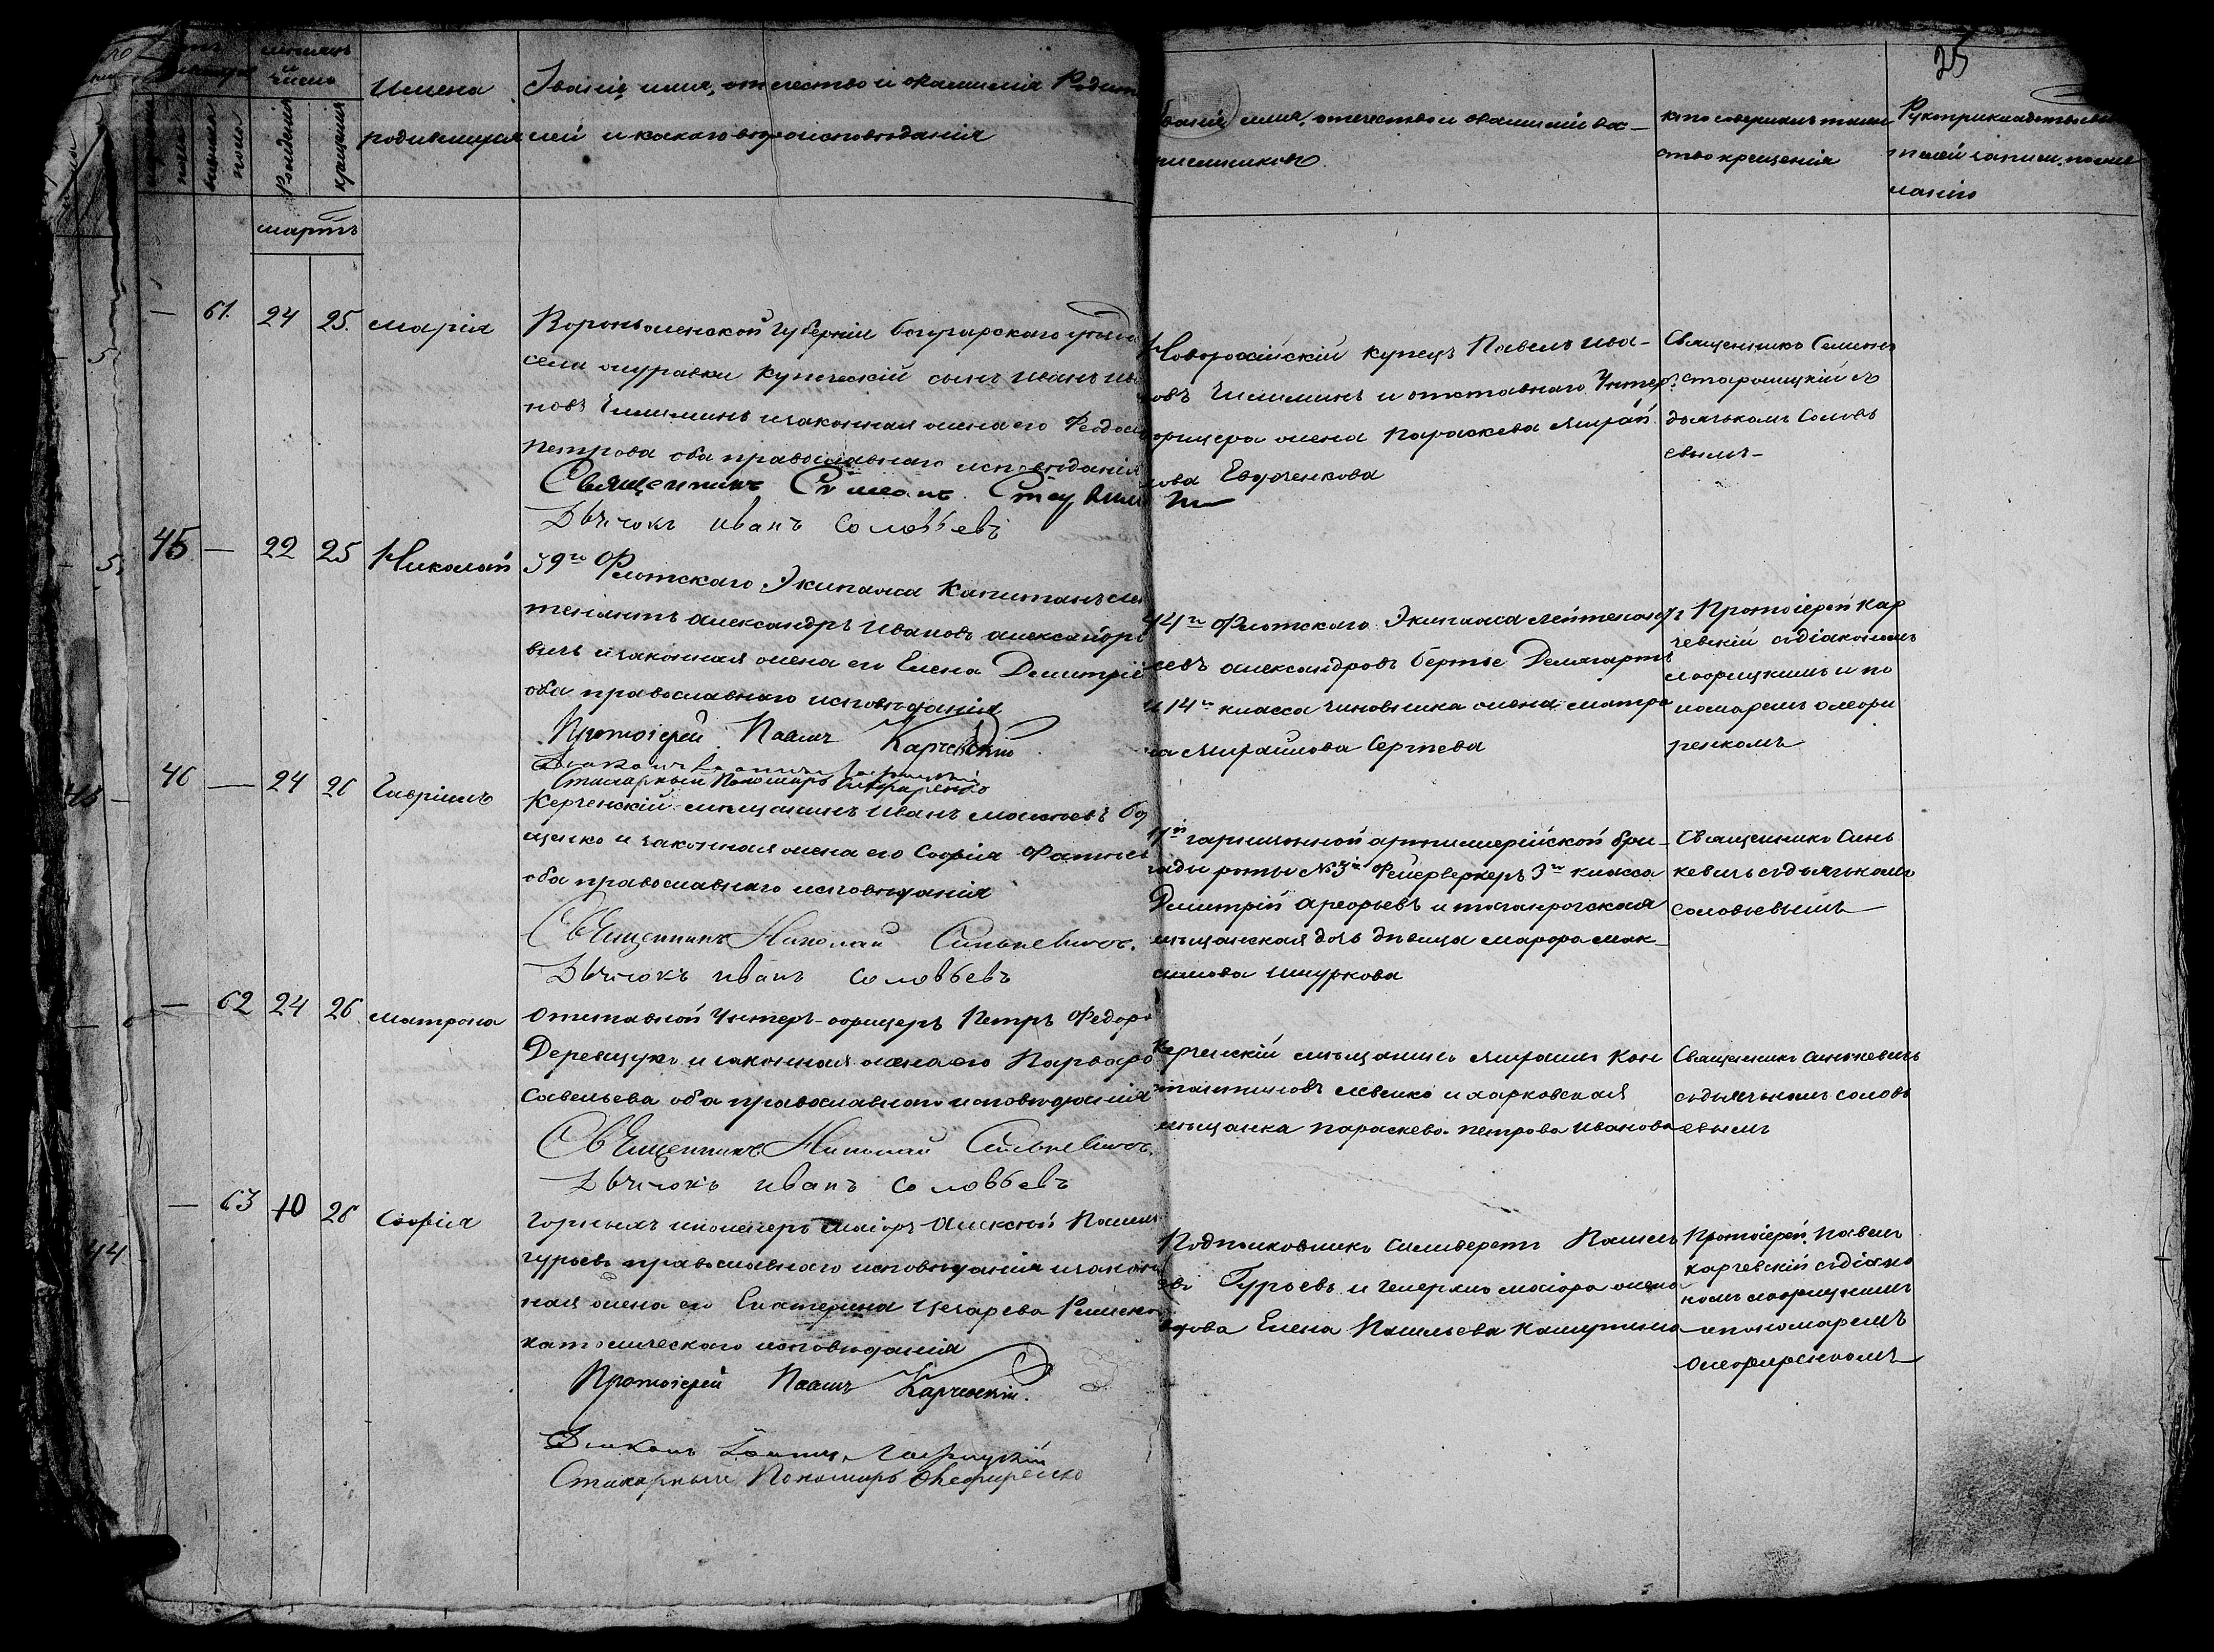 25
число
Рожденія
крещенія
Имена
родившихся
Званіе, имя, отчество и фамилія Родит
лей и какого вѣроисповѣданія
Званіе имя, отечество и фамилій во-
пріемниковъ
кто совершалъ таин
ство крещенія
Рукоприкладство
телей записи, по
ланію
мартъ
— 61. 24 25. Марія
Воронѣжской Губерніи Богучарскаго уѣзда
села Журавки Купеческій сынъ Иванъ Ива
новъ Чилиминъ и законная жена его Феодось
Петрова оба православнаго исповѣданія
Священникъ Симеонъ
Дьячокъ Иванъ Соловьевъ
Новоросійскій купецъ Павелъ Ива-
новъ Чилиминъ и отставного Унтер
офицера жена Параскева Михай
лова Евдоченкова
Священникъ Семенъ
Старицкій съ
дьячькомъ Соловь
евымъ-
45 — 22 25 Николай
39го Флотскаго Экипажа Капитанъ Лей
тенантъ Александръ Ивановъ Александро
вичь и законная жена его Елена Димитріе
оба православнаго исповѣданія
Протоіерей Павелъ Карчевскій
Стихарный Пономарь Олефиренко
44го Флотскаго Экипажа Лейтенантъ
Александровъ Бертье Делагартъ
и 14го класса чиновника жена Матре
на Михайлова Сергѣева
Протоіерей Кар
чевскій съ діакономъ
и по
номаремъ Олефи
ренкомъ
46 — 24 26 Гавріилъ
Керченскій мѣщанинъ Иванъ Моисѣевъ Бо
щенко и законная жена его Софія Фатѣев
оба православнаго исповѣданія
Священникъ Николай Синькевичъ.
Дьячокъ Иванъ Соловьевъ
11й гарнизонной артиллерійской бри-
гады роты №3й Фейерверкеръ 3го класса
Димитрій Арефьевъ и таганрогская
мѣщанская дочь дѣвица Марфа Мак-
симова Шнуркова
Священникъ Синь
кевичь съ дьячькомъ
Соловьевымъ
— 62 24 26 Матрона
Отставной Унтеръ-офицеръ Петръ Федоро
Деревщукъ и законная жена его Варвара
Савельева оба православнаго исповѣданія
Священникъ Николай Синькевичъ.
Дьячокъ Иванъ Соловьевъ
Керченскій мѣщанинъ Михаилъ Кон
стантиновъ Левенко и харковская
мѣщанка Параскева Петрова Иванова
Священникъ Синькевичь
съ дьячькомъ Соловь
евымъ
— 63 10 26 Софія
Горныхъ инженеръ Маіоръ Алексѣй Василь
Гурьевъ православнаго исповѣданія и закон
ная жена его Екатерина Цезарева Римско
католическаго исповѣданія
Протоіерей Павелъ Карчевскій.
Діаконъ
Стихарный Пономарь Олефиренко
Подполковникъ Силиверстъ Василь
евъ Гурьевъ и Генералъ маіора жена
Елена Васильева Кашутина
Протоіерей Павелъ
Карчевскій съ діако
номъ
и пономаремъ
Олефиренкомъ